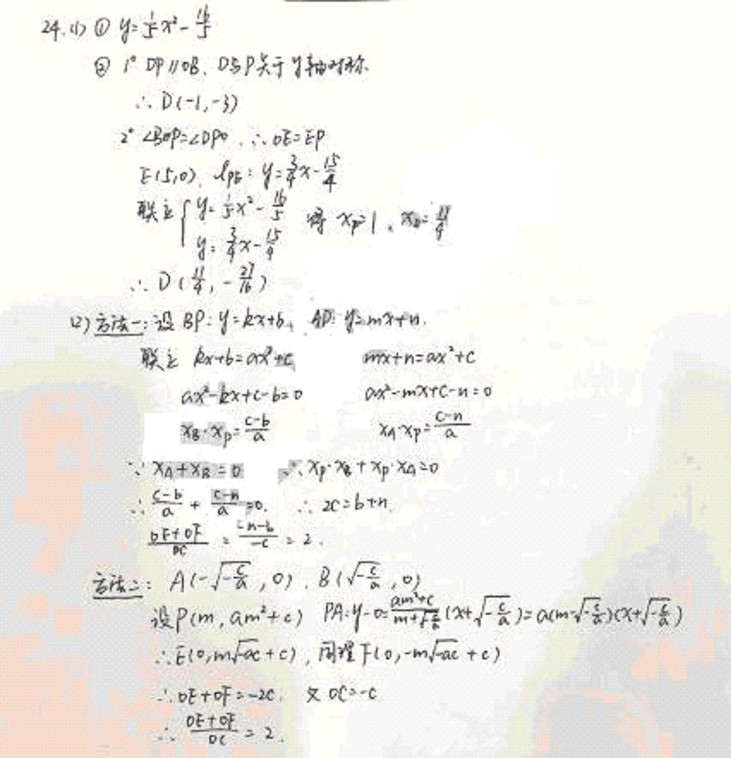 24.(1) ① y=1/5x²-16/5
② 1° DP∥OB、D与P关于y轴对称.
∴D(-1,-3)
2° ∠BOP=∠DPO ∴OE=EP
E(5,0)、l_PE: y=3/4x-15/4
联立 { y=1/5x²-16/5 得 x_P=1、x_D=11/4
y=3/4x-15/4
∴D(11/4, -27/16)
(2) 方法一:设BP:y=kx+b, AP:y=mx+n.
联立 kx+b=ax²+c mx+n=ax²+c
ax²-kx+c-b=0 ax²-mx+c-n=0
x_B·x_P=(c-b)/a x_A·x_P=(c-n)/a
∵x_A+x_B=0 ∴x_P·x_B+x_P·x_A=0
∴(c-b)/a+(c-n)/a=0. ∴2c=b+n.
(OE+OF)/OC=(-n-b)/(-c)=2.
方法二: A(-√(-c/a),0). B(√(-c/a),0)
设P(m,am²+c) PA:y-0=(am²+c)/(m+√(-c/a))(x+√(-c/a))=a(m-√(-c/a))(x+√(-c/a))
∴E(0,m√(-ac)+c),同理F(0,-m√(-ac)+c)
∴OE+OF=-2c. 又OC=-c
∴(OE+OF)/OC=2.